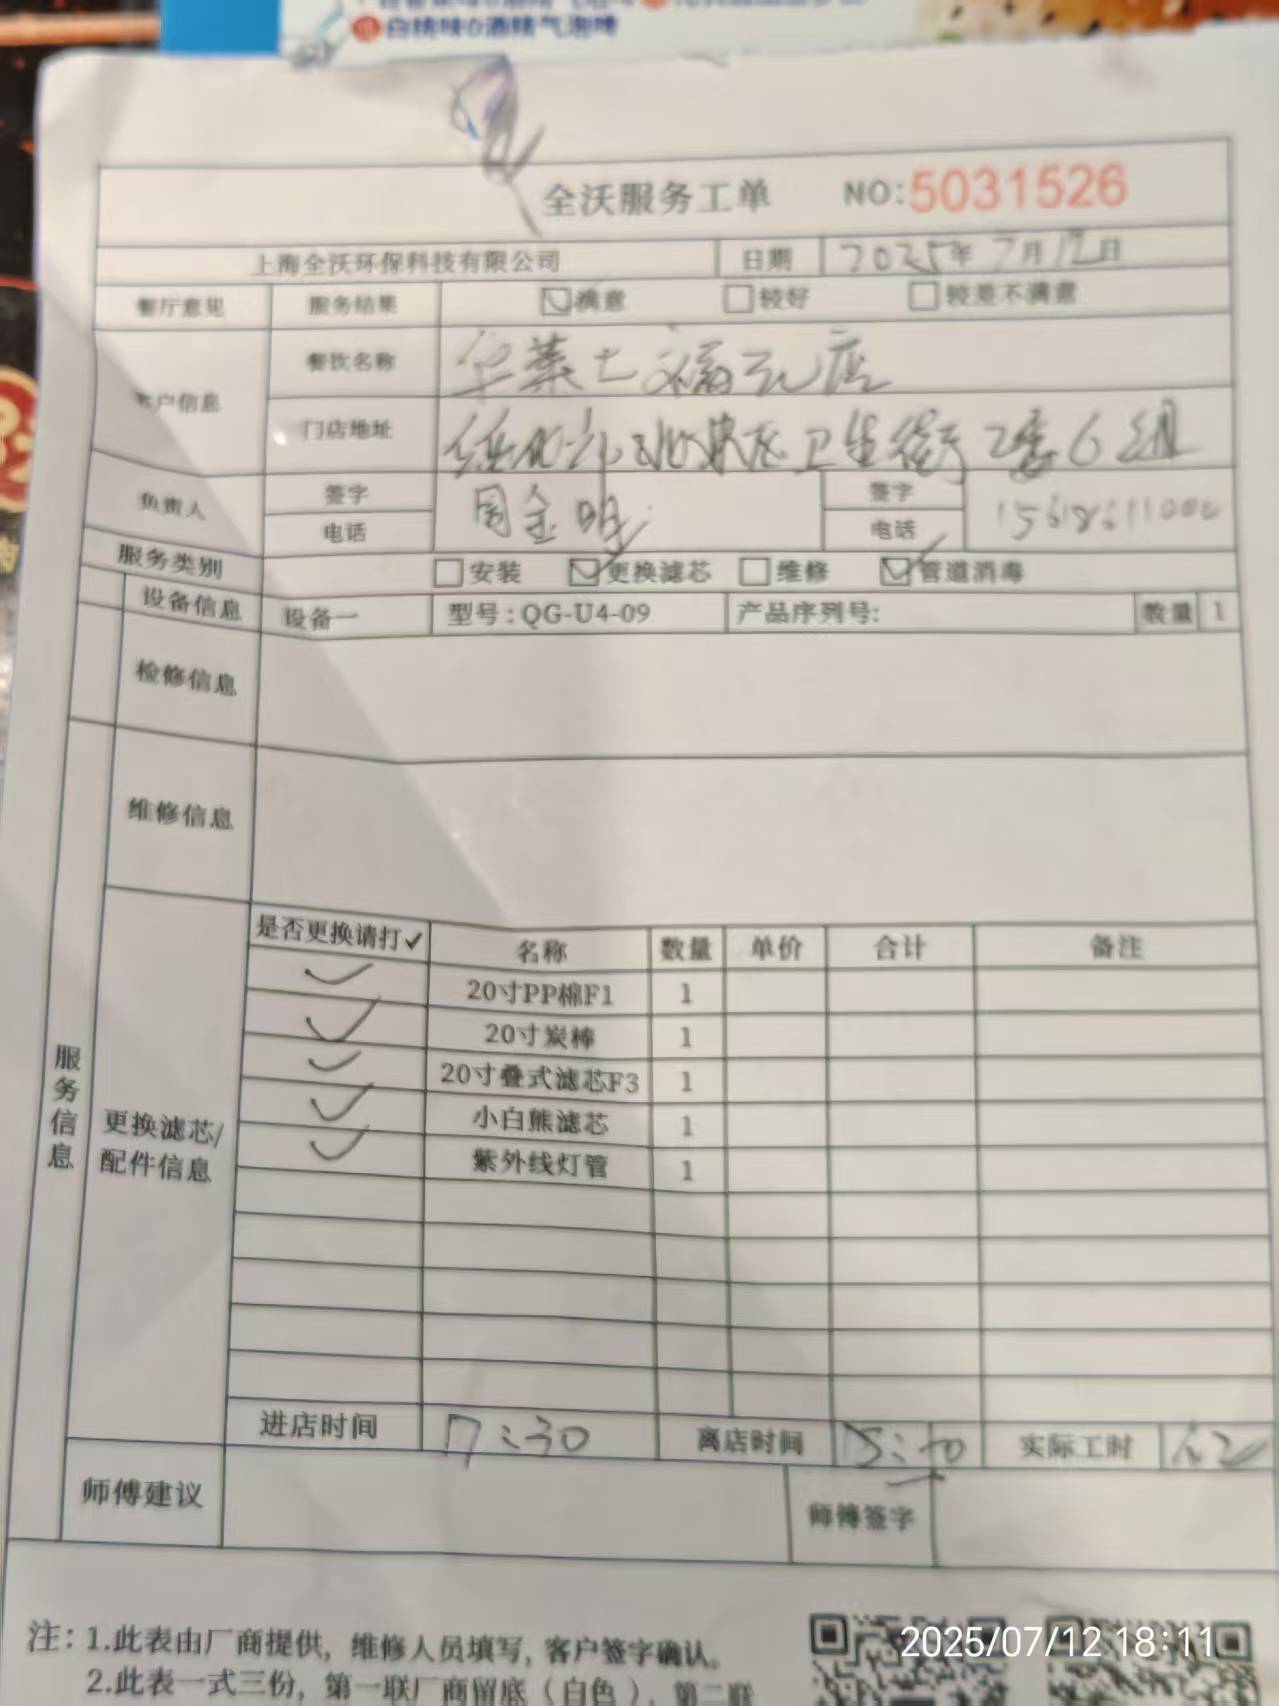 白桃味0酒精气泡啤
全沃服务工单 NO:5031526
上海全沃环保科技有限公司 日期 2025年7月12日
餐厅意见 服务结果 ☑满意 □较好 □较差不满意
客户信息 餐饮名称 华莱士 店
门店地址 卫生街 2委6组
负责人 签字 周金明 签字
电话 电话
服务类别 □安装 ☑更换滤芯 □维修 ☑管道消毒
设备信息 设备一 型号:QG-U4-09 产品序列号: 数量 1
检修信息
维修信息
服务信息
更换滤芯/
配件信息
是否更换请打✓ 名称 数量 单价 合计 备注
✓ 20寸PP棉F1 1
✓ 20寸炭棒 1
✓ 20寸叠式滤芯F3 1
✓ 小白熊滤芯 1
✓ 紫外线灯管 1
进店时间 17:30 离店时间 实际工时
师傅建议 师傅签字
注:1.此表由厂商提供,维修人员填写,客户签字确认。
2.此表一式三份,第一联厂商留底(白色),第二联
2025/07/12 18:11